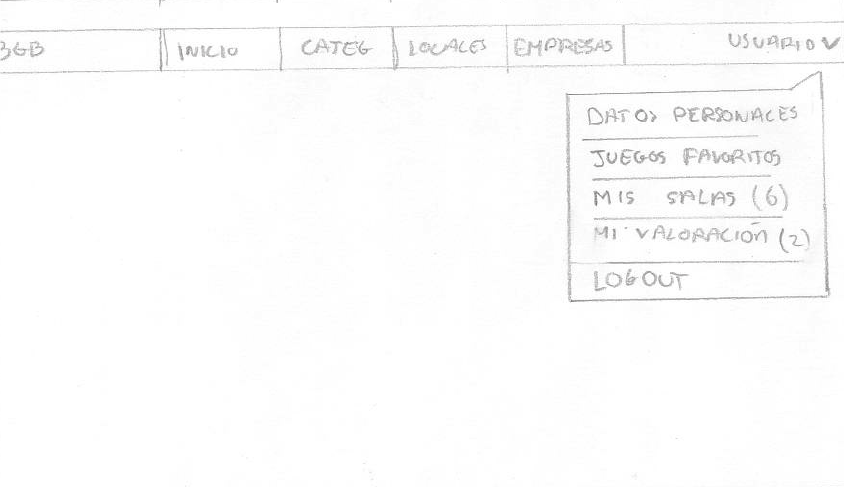 BGB INICIO CATEG LOCALES EMPRESAS USUARIO
DATOS PERSONALES
JUEGOS FAVORITOS
MIS SALAS (6)
MI VALORACIÓN (2)
LOGOUT